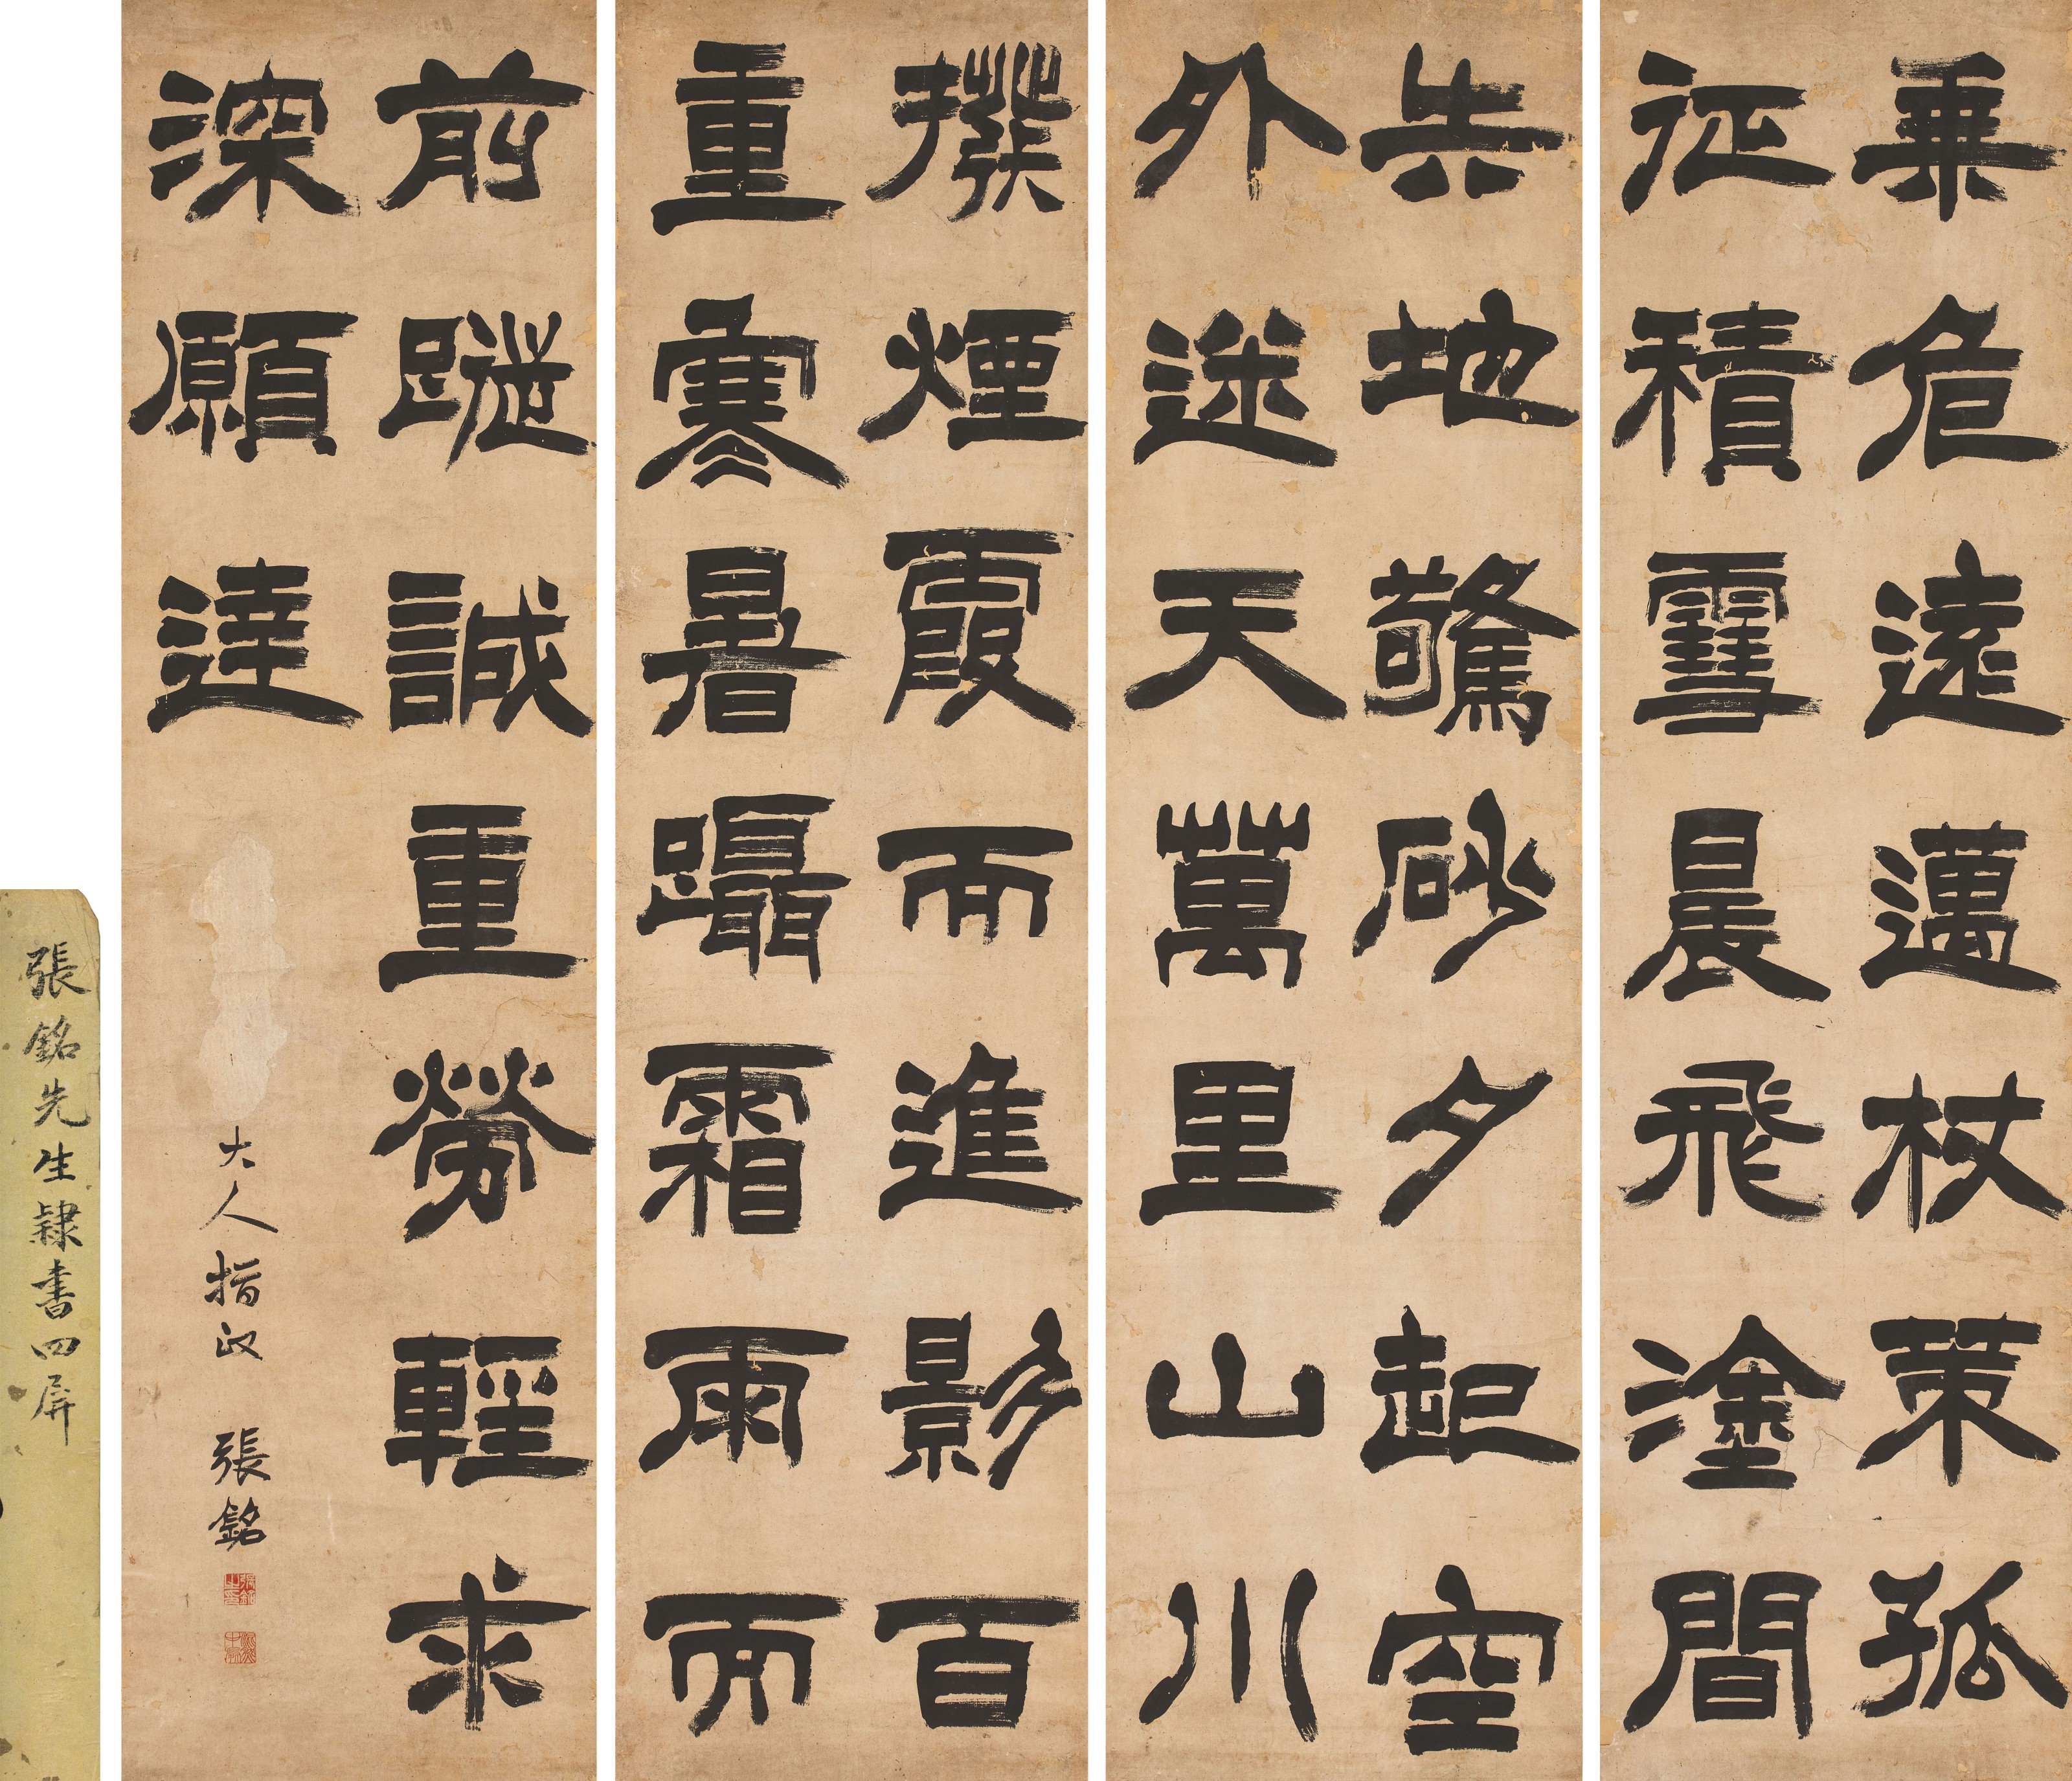 乗危遠邁杖策孤
征積雪晨飛塗間
失地驚砂夕起空
外迷天萬里山川
撥煙霞而進影百
重寒暑躡霜雨而
前蹤誠重勞輕求
深願達
大人指政 張銘
張銘先生隸書四屏